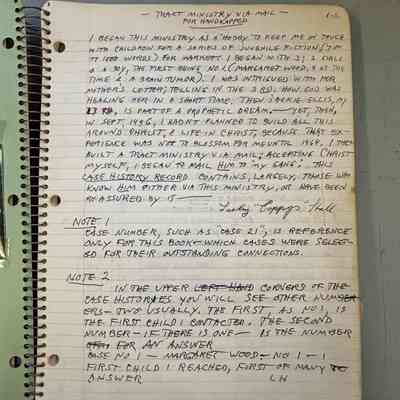 — TRACT MINISTRY VIA MAIL —
FOR HANDICAPPED
I BEGAN THIS MINISTRY AS A "HOBBY TO KEEP ME IN TOUCH
WITH CHILDREN FOR A SERIES OF JUVENILE FICTION (7 -
1000 WORDS) FOR MARKET. I BEGAN WITH
A BOY, THE FIRST BEING NO 1 (MARGARET WOOD, 9 AT THE
TIME & A BRAIN TUMOR). I WAS INTRIGUED WITH HER
MOTHER'S LETTER; TELLING IN THE 3 RD. HOW GOD WAS
HEALING HER IN A SHORT TIME. THEN JACKIE-ELLIS, MY
IS PART OF A PROPHETIC DREAM,— YET, THEN,
IN SEPT, 1956, I HADN'T PLANNED TO BUILD ALL THIS
AROUND CHRIST, & LIFE IN CHRIST, BECAUSE THAT EX-
PERIENCE WAS NOT TO BLOSSOM FOR ME UNTIL 1959. I THEN
BUILT A TRACT MINISTRY VIA MAIL; ACCEPTING CHRIST
MYSELF, I BEGAN TO MAIL HIM TO "MY GANG". THIS
CASE HISTORY RECORD CONTAINS, LARGELY, THOSE WHO
KNOW HIM EITHER VIA THIS MINISTRY, OR HAVE BEEN
REASSURED BY IT —
"Cappy" Hall
NOTE 1
CASE NUMBER, SUCH AS "CASE 21", IS REFERENCE
ONLY FOR THIS BOOK: WHICH CASES WERE SELECT-
ED FOR THEIR OUTSTANDING CONNECTIONS.
NOTE 2
IN THE UPPER LEFT HAND CORNERS OF THE
CASE HISTORYES YOU WILL SEE OTHER NUMB
ERS— TWO USUALLY. THE FIRST, AS NO 1, IS
THE FIRST CHILD I CONTACTED. THE SECOND
NUMBER— IF THERE IS ONE— IS THE NUMBER
FOR AN ANSWER
CASE NO 1 — MARGARET WOOD — NO 1 — 1
FIRST CHILD I REACHED, FIRST OF MANY TO
ANSWER LH